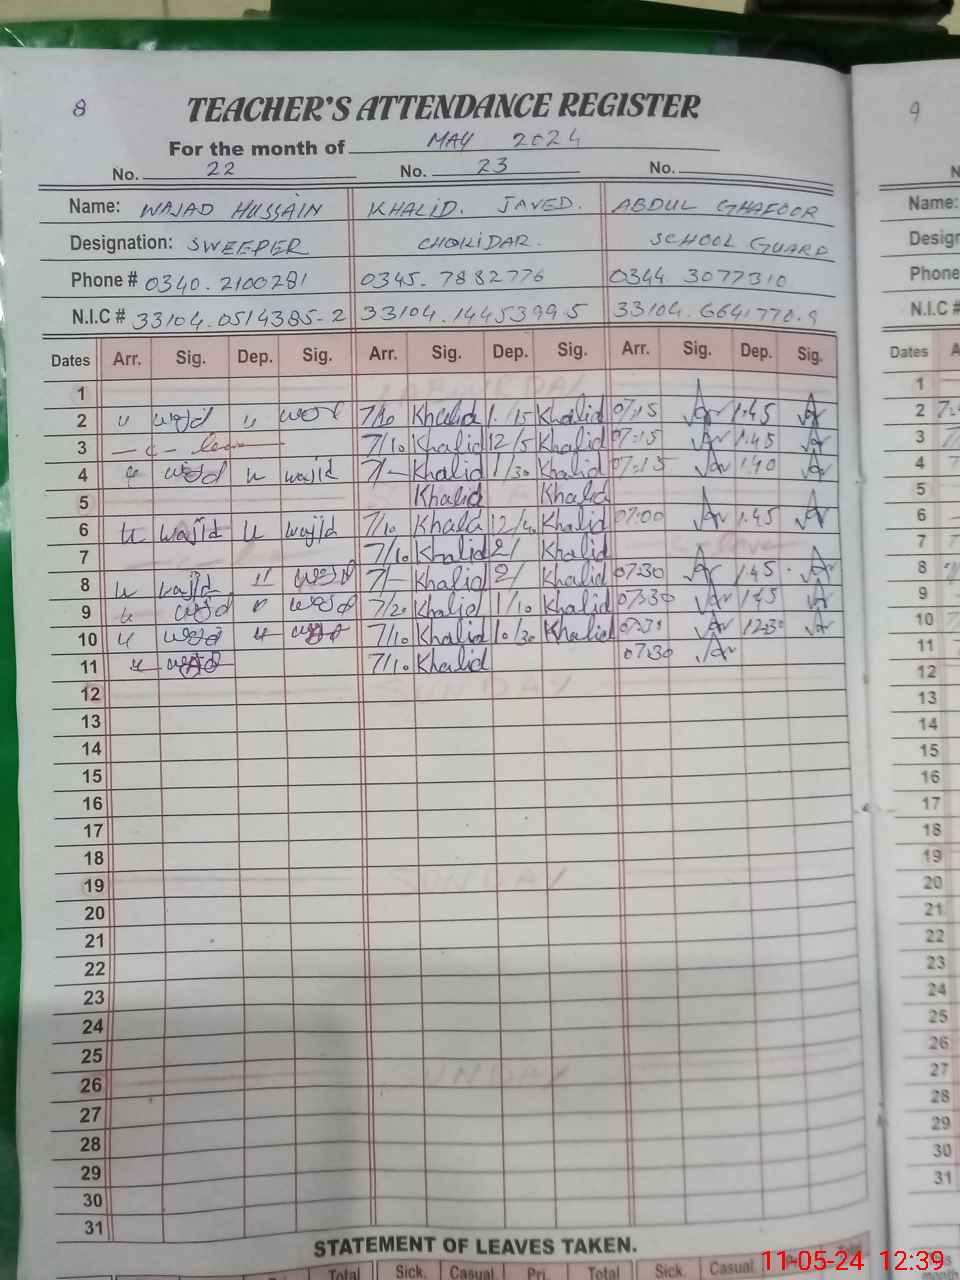 8
TEACHER'S ATTENDANCE REGISTER
For the month of MAY 2024
No. 22 No. 23 No.
Name: WAJAD HUSSAIN KHALID. JAVED. ABDUL GHAFOOR
Designation: SWEEPER CHOKIDAR. SCHOOL GUARD
Phone # 0340.2100281 0345.7882776 0344.3077310
N.I.C # 33104.0514385-2 33104.1445399.5 33104.6641770.9
Dates Arr. Sig. Dep. Sig. Arr. Sig. Dep. Sig. Arr. Sig. Dep. Sig.
1 LABOUR DAY
2 " wajd " 7/10 Khalid 1/15 Khalid 07:15 1.45
3 - c - leave 7/10 Khalid 12/5 Khalid 07:15 1.45
4 " wajd " wajid 7/- Khalid 1/30 Khalid 07:15 1.40
5 Khalid Khalid
6 " wajid " wajid 7/10 Khalid 12/4 Khalid 07:00 1.45
7 7/10 Khalid 2/ Khalid c - leave
8 " wajid " wajd 7/- Khalid 2/ Khalid 07:30 1.45
9 " wajd " wajd 7/20 Khalid 1/10 Khalid 07:30 1.45
10 " wajd " wajd 7/10 Khalid 10/30 Khalid 07:30 12:30
11 " wajd 7/10 Khalid 07:30
12 SUNDAY
13
14
15
16
17
18
19 SUNDAY
20
21
22
23
24
25
26 SUNDAY
27
28
29
30
31
STATEMENT OF LEAVES TAKEN.
Total Sick. Casual Pri. Total Sick. Casual
11-05-24 12:39
9
Name:
Phone
N.I.C #
Dates
1
2
3
4
5
6
7
8
9
10
11
12
13
14
15
16
17
18
19
20
21
22
23
24
25
26
27
28
29
30
31